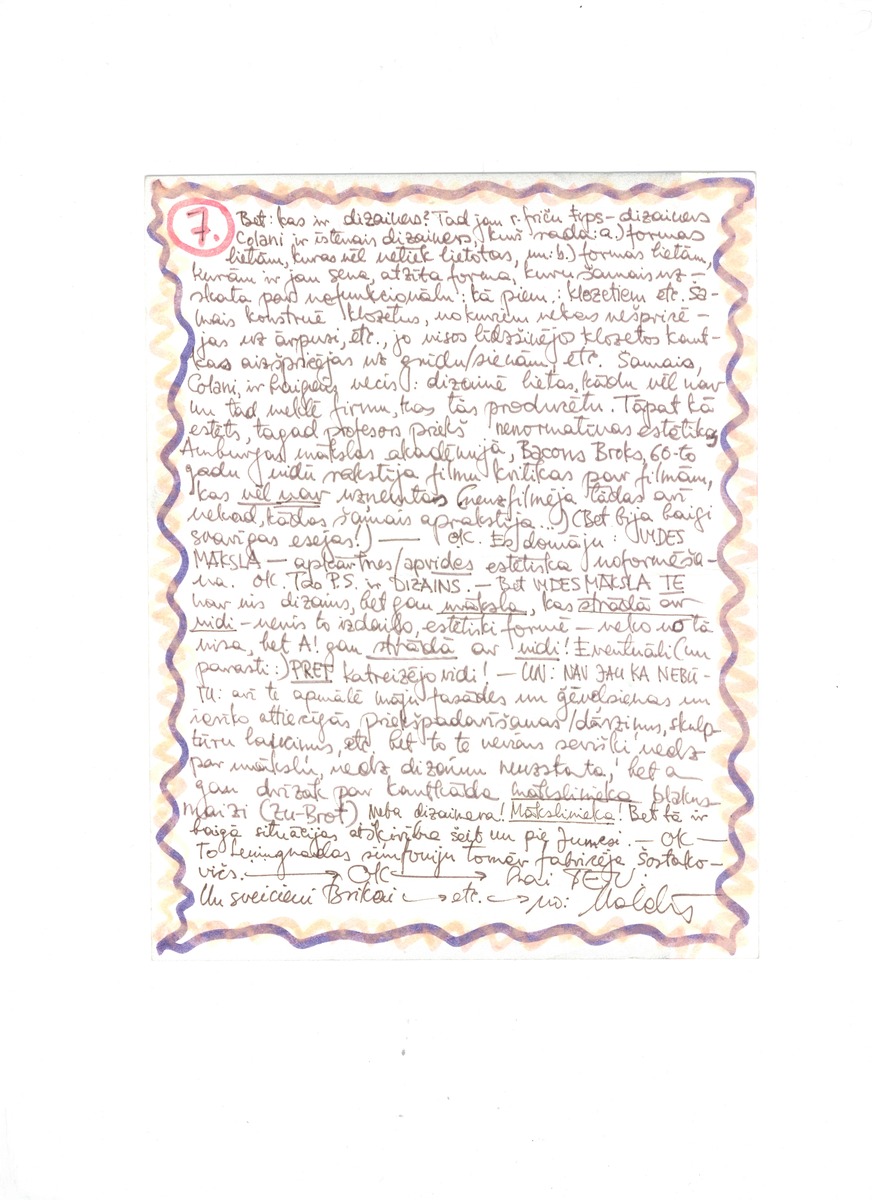 7. Bet: kas ir dizainers? Tad jau r. friču typs - dizainers
Colani ir īstenais dizainers, kurš rada: a.) formas
lietām, kuras vēl netiek lietotas, un: b.) formas lietām,
kurām ir jau sena, atzīta forma, kuru šamais uz-
skata par nefunkcionālu: tā piem.: klozetiem etc. Ša-
mais konstruē klozetus, no kuriem nekas nešpricē-
jas uz ārpusi, etc., jo visos līdzšinējos klozetos kaut-
kas aizšpricējas uz grīdu/sienām, etc. Šamais,
Colani, ir baigais vecis: dizainē lietas, kādu vēl nav
un tad meklē firmu, kas tās producētu. Tāpat kā
estēts, tagad profesors priekš nenormatīvas estētikas
Amburgas mākslas akadēmijā, Bacons Broks, 60-to
gadu vidū rakstīja filmu kritikas par filmām,
kas vēl nav uzņemtas (neuzfilmēja tādas arī
nekad, kādas šamais aprakstīja...) (Bet bija baigi
svarīgas esejas!) — OK. Es domāju: VIDES
MĀKSLA — apkārtnes/apvides estētiska noformēša-
na. OK. Tas P.S. ir DIZAINS. — Bet VIDES MĀKSLA TE
nav vis dizains, bet gan māksla, kas strādā ar
vidi - nevis to izdaiļo, estētiski formē - neko no tā
visa, bet A! gan strādā ar vidi! Eventuāli (un
parasti:) PRET katreizējo vidi! — UN: NAV JAU KA NEBŪ-
TU: arī te apmālē māju fasādes un ģēvelsienas un
ieriko attiecīgās priekšpadarīšanas/dārziņus, skulp-
tūru laukumus, etc. bet to te nevāns sevišķi nedz
par mākslu, nedz dizainu neuzskata, bet a
gan drīzāk par kautkāda mākslinieka blakus-
maizi (Zu-Brot) Neba dizainera! Mākslinieka! Bet tā ir
baigā situācijas atšķirība šeit un pie Jumsi. — OK —
To Ļeņingradas simfoniju tomēr fabricēja Šostako-
vičs. → OK → Lai TEJU!
Un sveicieni Brikai → etc. → no: Valdis